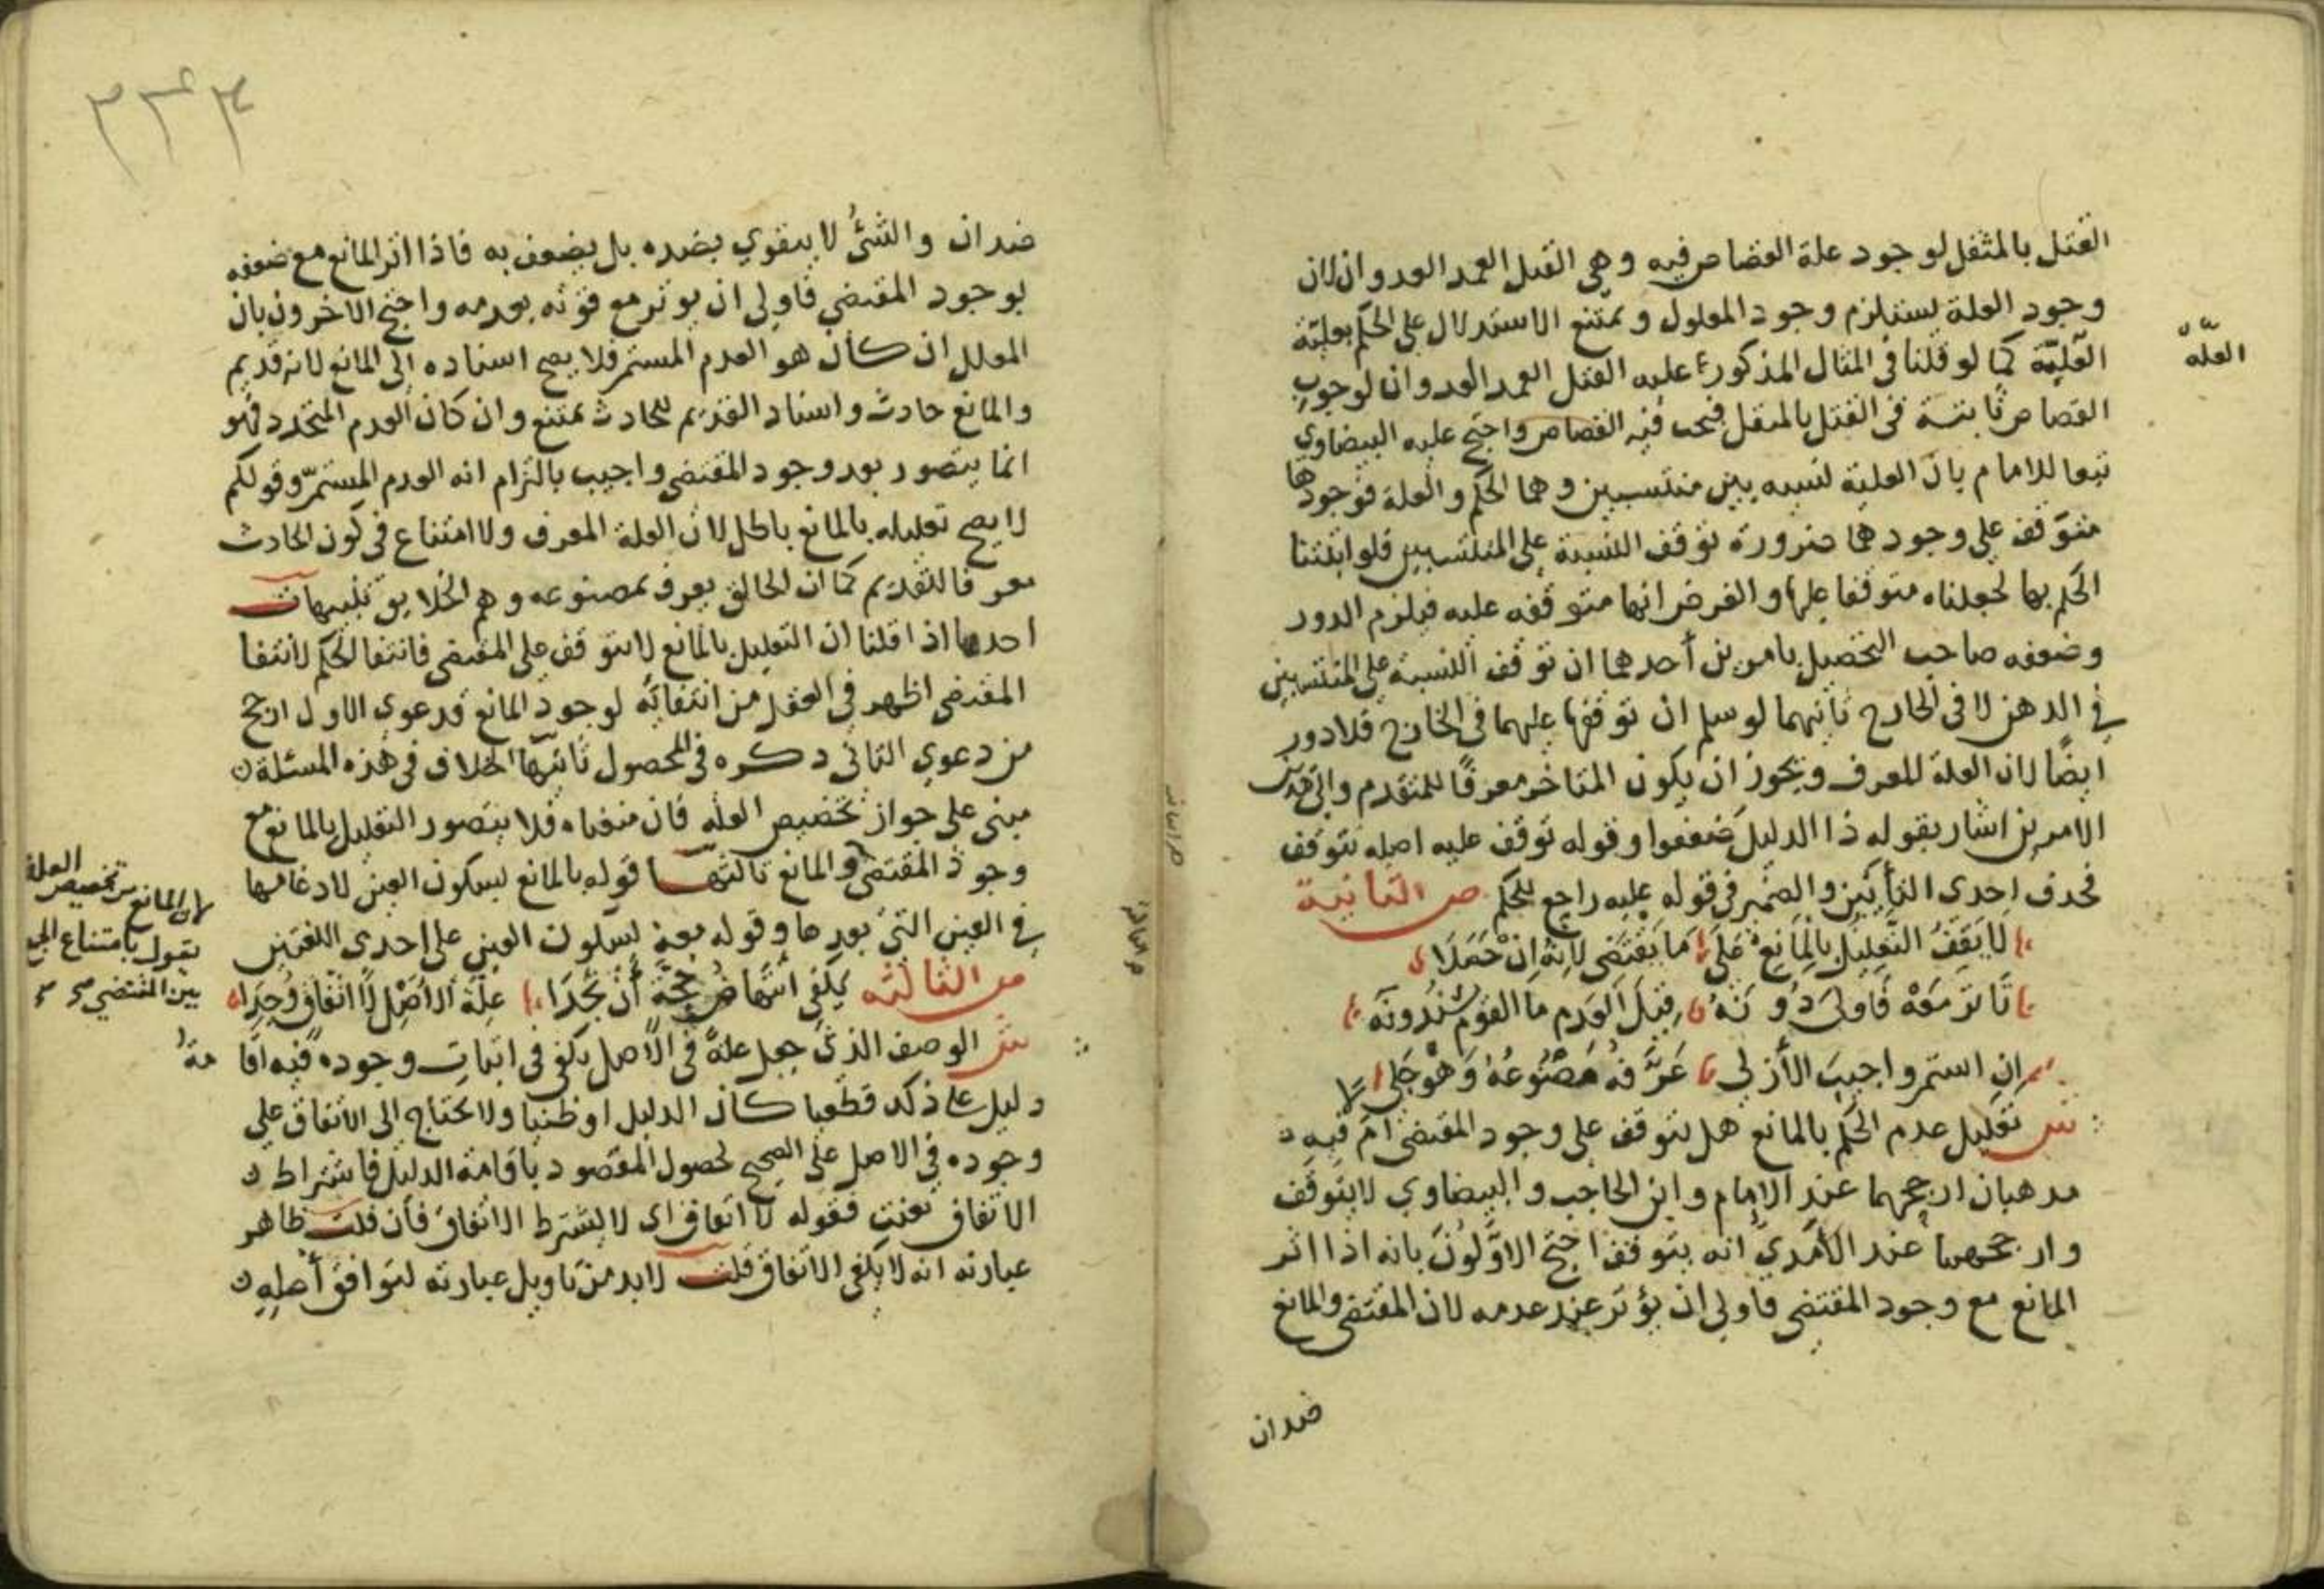 القتل بالمثقل لوجود علة القصاص فيه وهي القتل العمد العدوان لان
وجود العلة يستلزم وجود المعلول ويمتنع الاستدلال على الحكم بعليّة
العلّيّة كما لو قلنا في المثال المذكور عليه القتل العمد العدوان لوجوب
العله
القصاص ثابتة في القتل بالمثقل فيجب فيه القصاص واحتج عليه البيضاوي
تبعا للامام بان العلية نسبه بين منتسبين وهما الحكم والعلة فوجودها
متوقف على وجودهما ضرورة توقف النسبة على المنتسبين فلو اثبتنا
الحكم بها لجعلناه متوقفا عليها والفرض انها متوقفه عليه فيلزم الدور
وضعفه صاحب التحصيل بامرين أحدهما ان توقف النسبة على المنتسبين
في الذهن لا في الخارج ثانيهما لو سلم ان توقفها عليهما في الخارج فلا دور
ايضًا لان العلة المعرف ويجوز ان يكون المتاخر معرفًا للمتقدم والى هذين
الامرين اشار بقوله ذا الدليل ضعفوا وقوله توقف عليه اصله تتوقف
فحذف احدى التأيين والضمير في قوله عليه راجع للحكم ص الثانية
لا يقف التعليل بالمانع على ما يقتضي لانه ان حصلا
تاثر معه فاولى دونه قيل العدم ما القوم يسندونه
ان استمر واجيب الأزلي عرّفه مصنوعه وهو جلي
ش تعليل عدم الحكم بالمانع هل يتوقف على وجود المقتضى ام لا فيه
مذهبان ارجحهما عند الامام وابن الحاجب والبيضاوي لا يتوقف
وارجحهما عند الآمدي انه يتوقف احتج الاوّلون بانه اذا اثر
المانع مع وجود المقتضي فاولى ان يؤثر عند عدمه لان المقتضي والمانع
ضدان
ضدان والشئ لا يتقوي بضده بل يضعف به فاذا اثر المانع مع ضعفه
بوجود المقتضي فاولى ان يوثر مع قوته بعدمه واحتج الاخرون بان
المعلل ان كان هو العدم المستمر فلا يصح اسناده الى المانع لانه قديم
والمانع حادث واسناد القديم للحادث ممتنع وان كان العدم المتجدد فهو
انما يتصور بعد وجود المقتضي واجيب بالتزام انه العدم المستمرّ وقولكم
لا يصح تعليله بالمانع باطل لان العلة المعرف ولا امتناع في كون الحادث
معرفا للقديم كما ان الخالق يعرف بمصنوعه وهم الخلايق تنبيهات
احدها اذا قلنا ان التعليل بالمانع لا يتوقف على المقتضي فانتفا الحكم لانتفا
المقتضي اظهر في العقل من انتفائه لوجود المانع فدعوى الاول ارجح
من دعوي الثاني ذكره في المحصول ثانيها الخلاف في هذه المسئلة
مبني على جواز تخصيص العله فان منعناه فلا يتصور التعليل بالمانع مع
وجود المقتضى والمانع ثالثها قوله بالمانع بسكون العين لادغامها
لان المانع من تخصيص العلة
يقول بامتناع الجمع
بين المقتضي
في العين التي بعدها وقوله معه بسكون العين على احدى اللغتين
ص الثالثه يكفي انتهاض حجة أن تجدا علة الاصل لا اتفاق وجدا
ش الوصف الذي جعل علة في الأصل يكفي في اثبات وجوده فيه اقامة
دليل على ذلك قطعيا كان الدليل او ظنيا ولا يحتاج الى الاتفاق على
وجوده في الاصل على الصحيح لحصول المقصود باقامة الدليل فاشتراط
الاتفاق تعنت فقوله لا اتفاق اى لا يشترط الاتفاق فان قلت ظاهر
عبارته انه لا يكفي الاتفاق قلت لا بد من تاويل عبارته لتوافق أصله